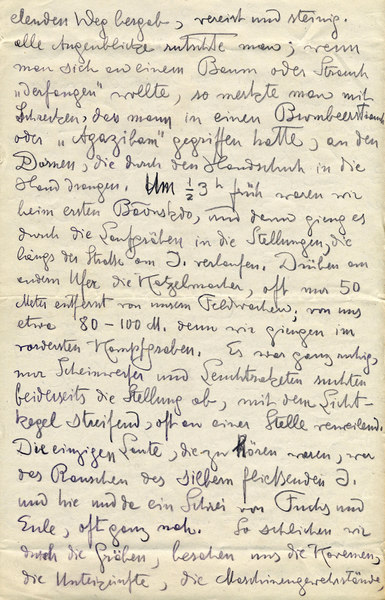 elenden Weg bergab, vereist und steinig.
alle Augenblicke rutschte man; wenn
man sich an einem Baum oder Strauch
„derfangen" wollte, so merkte man mit
Schrecken, das man in einen Brombeerstrauch
oder „Agazibam" gegriffen hatte, an den
Dornen, die durch den Handschuh in die
Hand drangen. Um ½ 3 h früh waren wir
beim ersten Baonskdo, und dann gieng es
durch die Laufgräben in die Stellungen, die
längs der Straße am I. verlaufen. Drüben am
andern Ufer die Katzelmacher, oft nur 50
Meter entfernt von unsern Feldwachen, von uns
etwa 80-100 M. denn wir giengen im
vordersten Kampfgraben. Es war ganz ruhig,
nur Scheinwerfer und Leuchtraketen suchten
beiderseits die Stellung ab, mit dem Licht-
kegel streifend, oft an einer Stelle verweilend.
Die einzigen Laute, die zu hören waren, war
das Rauschen des silbern fließenden I.
und hie und da ein Schrei von Fuchs und
Eule, oft ganz nah. So schlichen wir
durch die Gräben, besahen uns die Kavernen,
die Unterkünfte, die Maschinengewehrstände